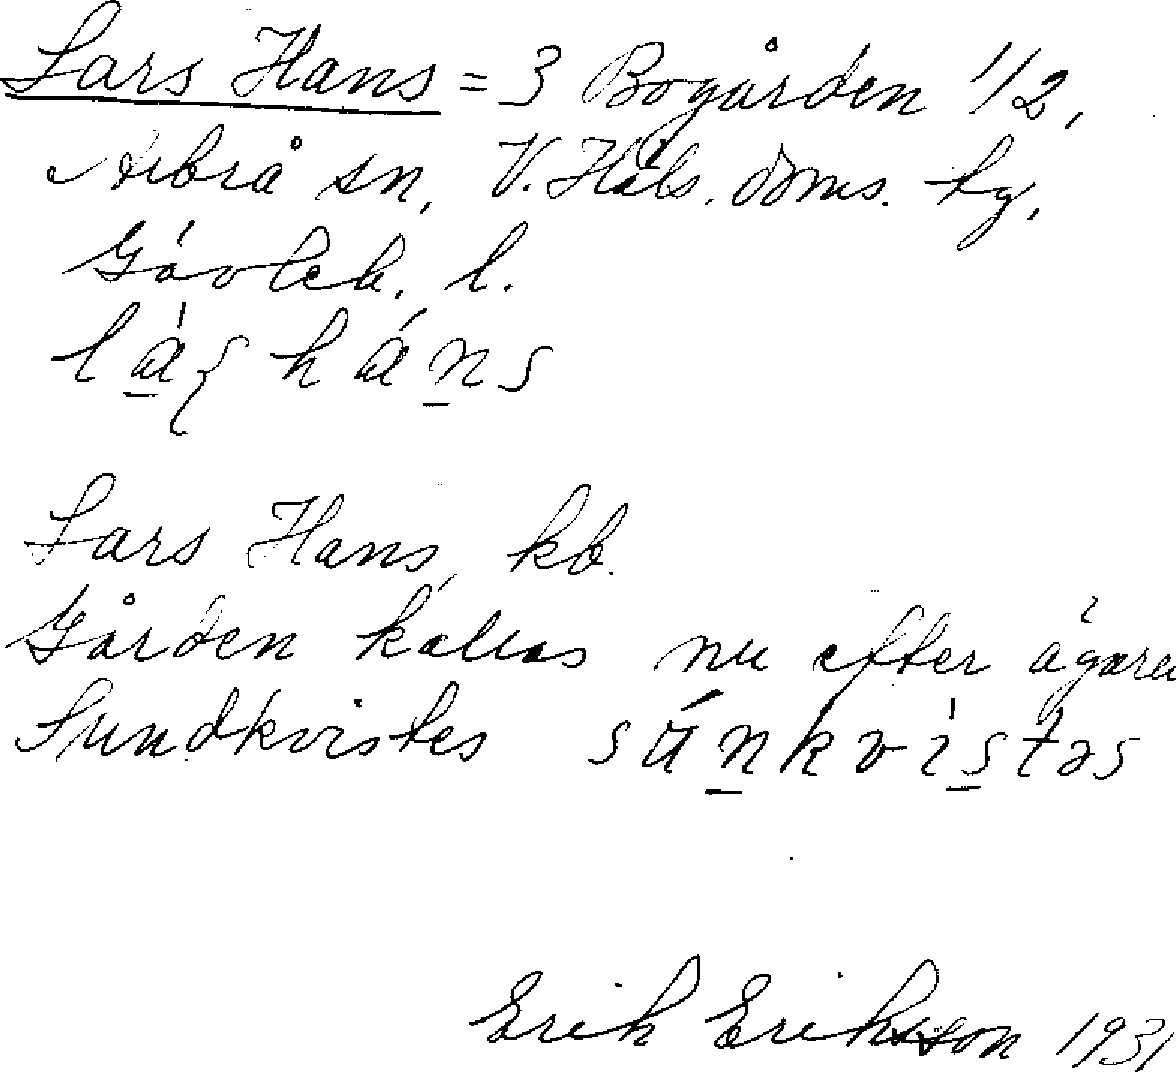 Lars Hans = 3 Bogården 1/2,
Arbrå sn, V. Häls. doms. hg,
Gävleb. l.
Lars Hans, kb.
Gården kallas nu efter ägaren
Sundkvistes
Erik Eriksson 1931